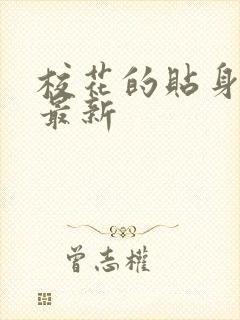 校花的贴身
最新
曾志權